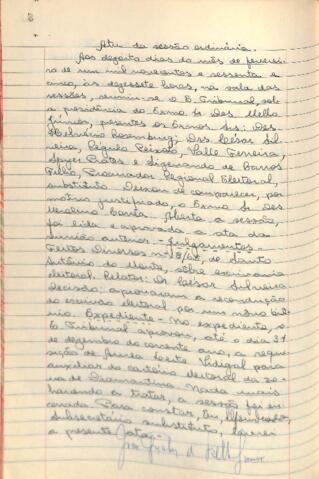 Ata da sessão ordinária.
Aos dezoito dias do mês de feverei-
ro de um mil novecentos e sessenta e
cinco, às dezessete horas, na sala das
sessões, reuniu-se o E. Tribunal, sob
a presidência do Exmo. Sr. Des. Mello
Júnior, presentes os Exmos. Srs.: Des.
Des. César Sil-
veira, Régulo Peixoto, Valle Ferreira,
Pratos e de Barros
Filho, Procurador Regional Eleitoral,
substituto. Deixou de comparecer, por
motivo justificado, o Exmo. Sr. Des.
Aberta a sessão,
foi lida e aprovada a ata da
reunião anterior. - Julgamentos -
Feitos Diversos nº de Santo
Antônio do Monte, sobre escrivania
eleitoral. Relator: Des. César Silveira
Decisão: aprovaram a recondução
do escrivão eleitoral por um novo biê-
nio. Expediente - No expediente, o
E. Tribunal aprovou, até o dia 31
de dezembro do corrente ano, a requi-
sição de Leite Vidigal para
auxiliar do cartório eleitoral da zo-
na de Diamantina. Nada mais
havendo a tratar, a sessão foi en-
cerrada. Para constar, Eu,
Subsecretário substituto, lavrei
a presente ata.